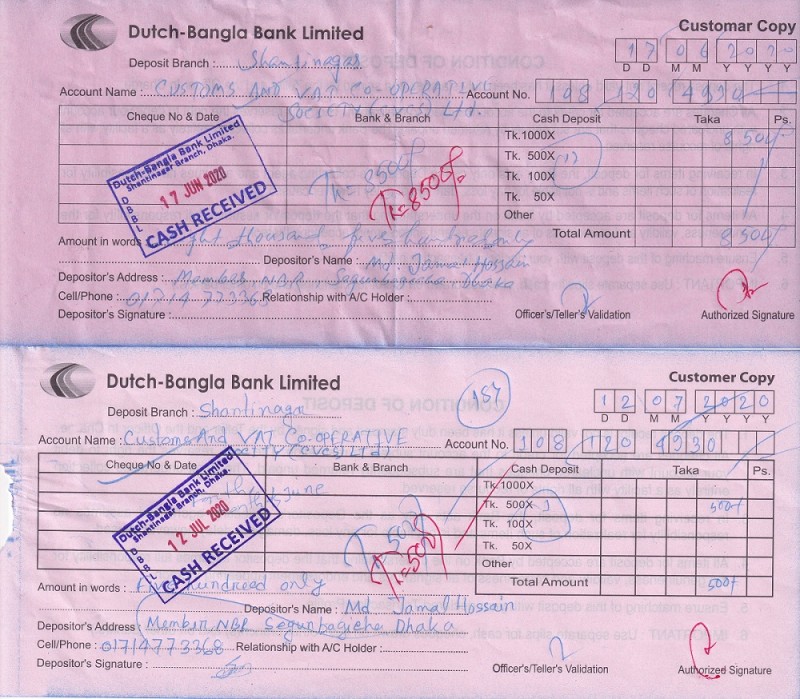 Dutch-Bangla Bank Limited
Customar Copy
Deposit Branch : Shantinagar
17 06 2020
D D M M Y Y Y Y
Account Name : CUSTOMS AND VAT CO-OPERATIVE SOCIETY Ltd.
Account No. 108 120 4930
Cheque No & Date Bank & Branch Cash Deposit Taka Ps.
Tk. 1000X 8500/
Tk. 500X
Tk. 100X
Tk. 50X
Other
Total Amount 8500/
Tk 8500/
Tk=8500/
Dutch-Bangla Bank Limited
Shantinagar Branch, Dhaka.
DBBL
17 JUN 2020
CASH RECEIVED
Amount in words : Eight thousand five hundred only
Depositor's Name : Md. Jamal Hossain
Depositor's Address : Member NBR, Segunbagicha Dhaka
Cell/Phone : 01714 773368 Relationship with A/C Holder :
Depositor's Signature :
Officer's/Teller's Validation
Authorized Signature
Dutch-Bangla Bank Limited
Customer Copy
187
Deposit Branch : Shantinagar
12 07 2020
D D M M Y Y Y Y
Account Name : Customs And VAT CO-OPERATIVE
Account No. 108 120 4930
Cheque No & Date Bank & Branch Cash Deposit Taka Ps.
Tk. 1000X
Tk. 500X 1 500/
Tk. 100X
Tk. 50X
Other
Total Amount 500/
June
Tk 500/
Tk=500/
Dutch-Bangla Bank Limited
Shantinagar Branch, Dhaka.
DBBL
12 JUL 2020
CASH RECEIVED
Amount in words : Five hundreed only
Depositor's Name : Md Jamal Hossain
Depositor's Address : Member NBR Segunbagicha Dhaka
Cell/Phone : 01714773368 Relationship with A/C Holder :
Depositor's Signature :
Officer's/Teller's Validation
Authorized Signature